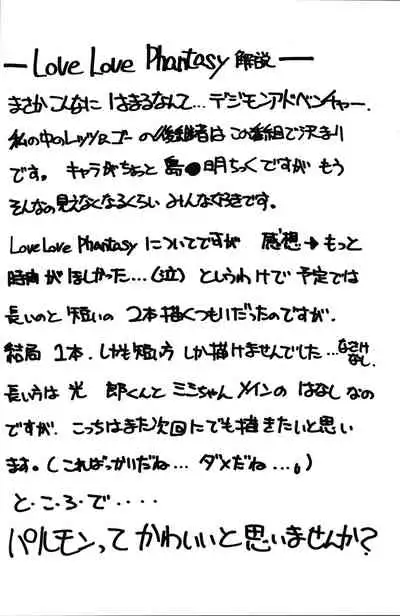 — Love Love Phantasy 解説 —
まさかこんなに はまるなんて…デジモンアドベンチャー.
私の中のレッツ&ゴー の後継者は この番組で決まり
です。 キャラがちょっと 島●明ちっくですが もう
そんなの見えなくなるくらい みんな好きです。
Love Love Phantasy についてですが 感想→もっと
時間がほしかった…(泣) というわけで 予定では
長いのと 短いの 2本描くつもりだったのですが.
結局 1本. しかも短い方 しか描けませんでした…なさけなし.
長い方は 光 郎くんと ミミちゃん メインの はなし なの
ですが. こっちはまた次回にでも描きたいと思い
ます。(こればっかいだね… ダメだね…。)
と・こ・ろ・で・・・・
パルモンって かわいいと思いませんか?